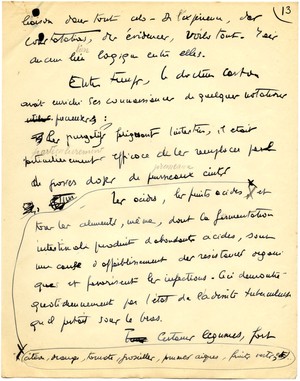 13
liaison dans tout cela - De l'expérience, des
constatations, des évidences, voilà tout. Mais
aucun lien logique entre elles.
Entre temps, le docteur Carton
avait enrichi ses connaissances de quelques notations
Les purgatifs fatiguant l'intestin, il était
particulièrement efficace de les remplacer par
de grosses doses de pruneaux cuits
Les acides, les fruits acides, et
tous les aliments, même, dont la fermentation
intestinale produit d'abondants acides, sont
une cause d'affaiblissement des résistances organi
ques et favorisent les infections. Ceci démontré
quotidiennement par l'état
Certains légumes, fort
citron, orange, tomate, groseilles, prunes aigres, fruits verts